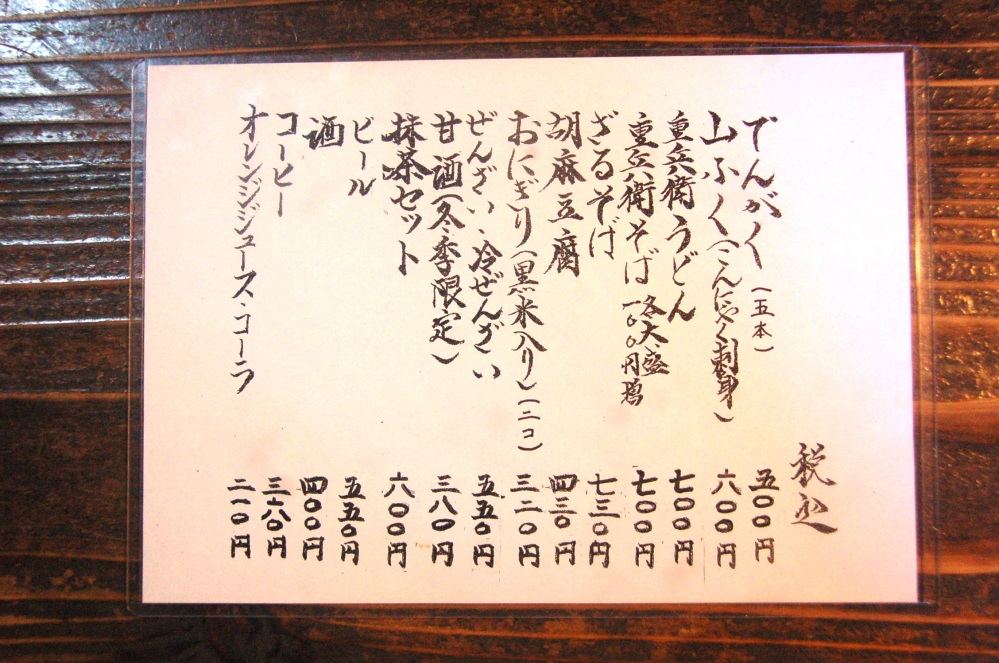 税込
でんがく（五本） 五〇〇円
山ふく（こんにゃく刺身） 六〇〇円
重兵衛うどん 七〇〇円
重兵衛そば 七〇〇円
各大盛
一〇〇円増
ざるそば 七三〇円
胡麻豆腐 四三〇円
おにぎり（黒米入り）（二コ） 三二〇円
ぜんざい、冷ぜんざい 五五〇円
甘酒（冬季限定） 三八〇円
抹茶セット 六〇〇円
ビール 五五〇円
酒 四〇〇円
コーヒー 三六〇円
オレンジジュース・コーラ 二一〇円